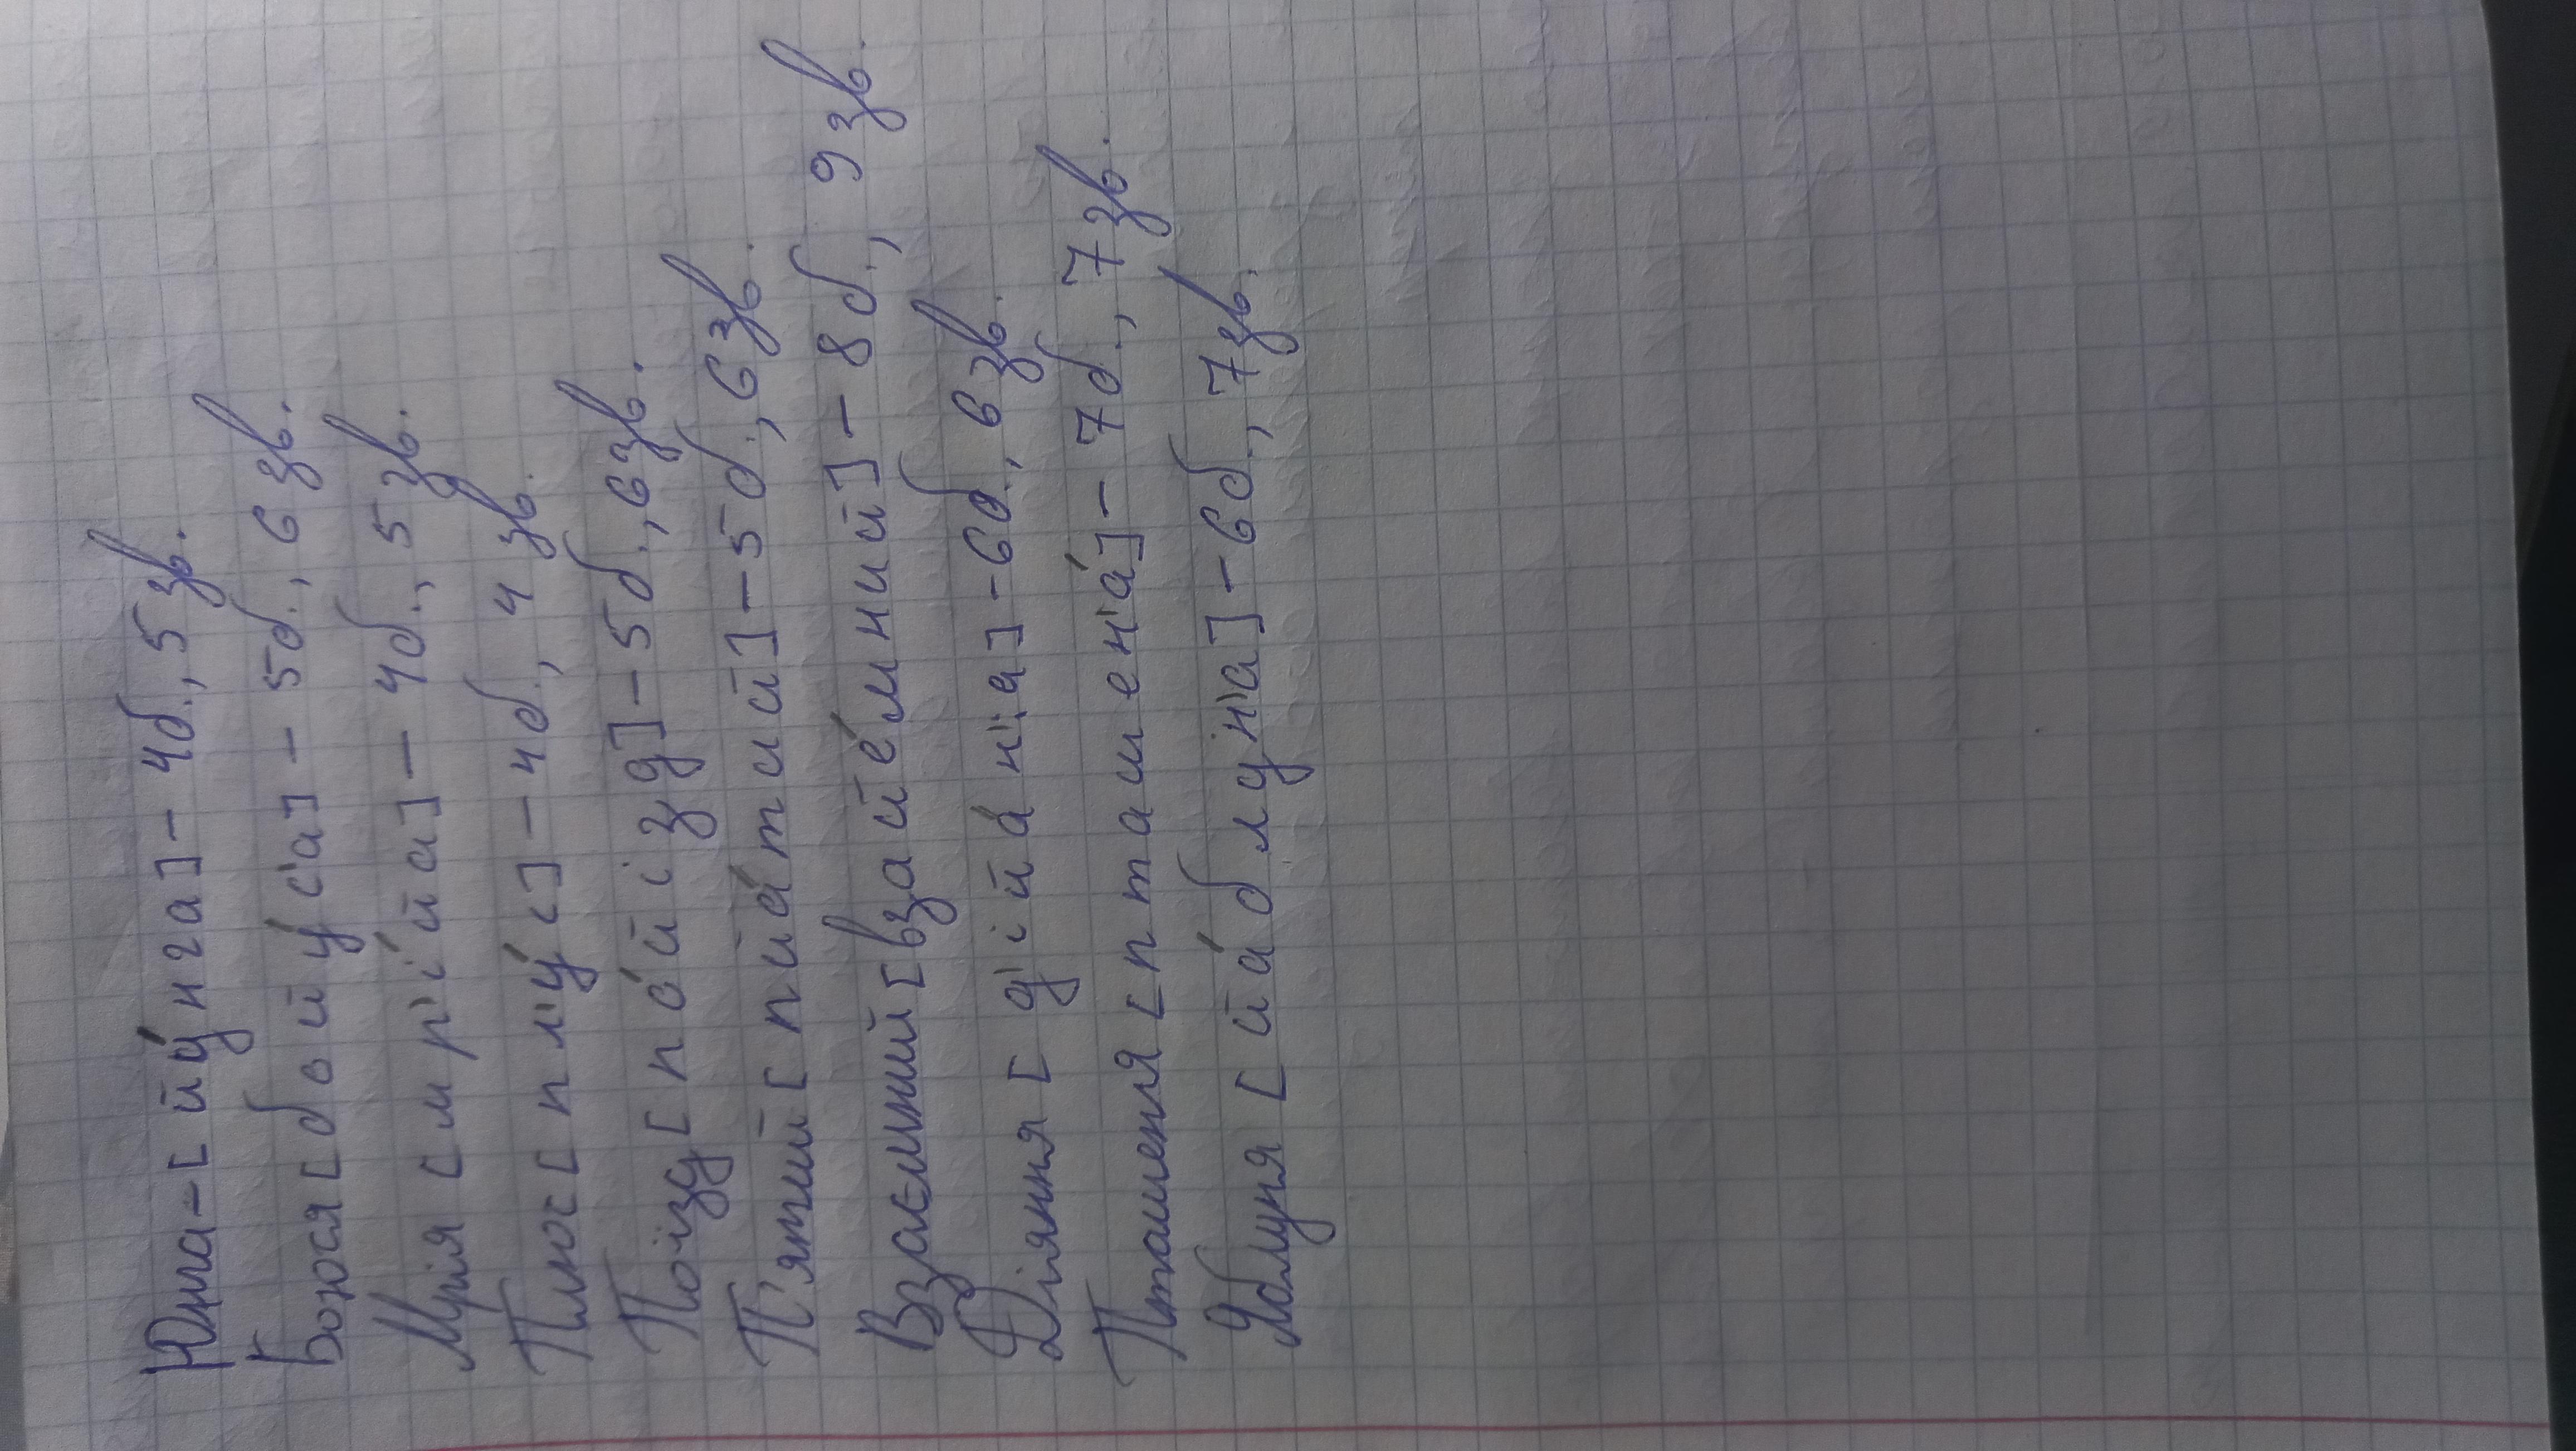 Юнга-[йу́нга]- 4б., 5 зв.
Боюся [бойу́с'а] - 5б., 6 зв.
Мрія [мр'і́йа] - 4б., 5 зв.
Плюс [пл'ус] - 4б., 4 зв.
Поїзд [по́йізд] - 5б., 6зв.
П'ятий [пйа́тий] - 5б., 6зв.
Взаємний [взайе́мний] - 8б., 9 зв.
Діяння [д'ійа́н':а] -6б., 6 зв.
Пташеня [пташен'а́] - 7б., 7 зв.
Яблуня [йа́блун'а] - 6б., 7зв.